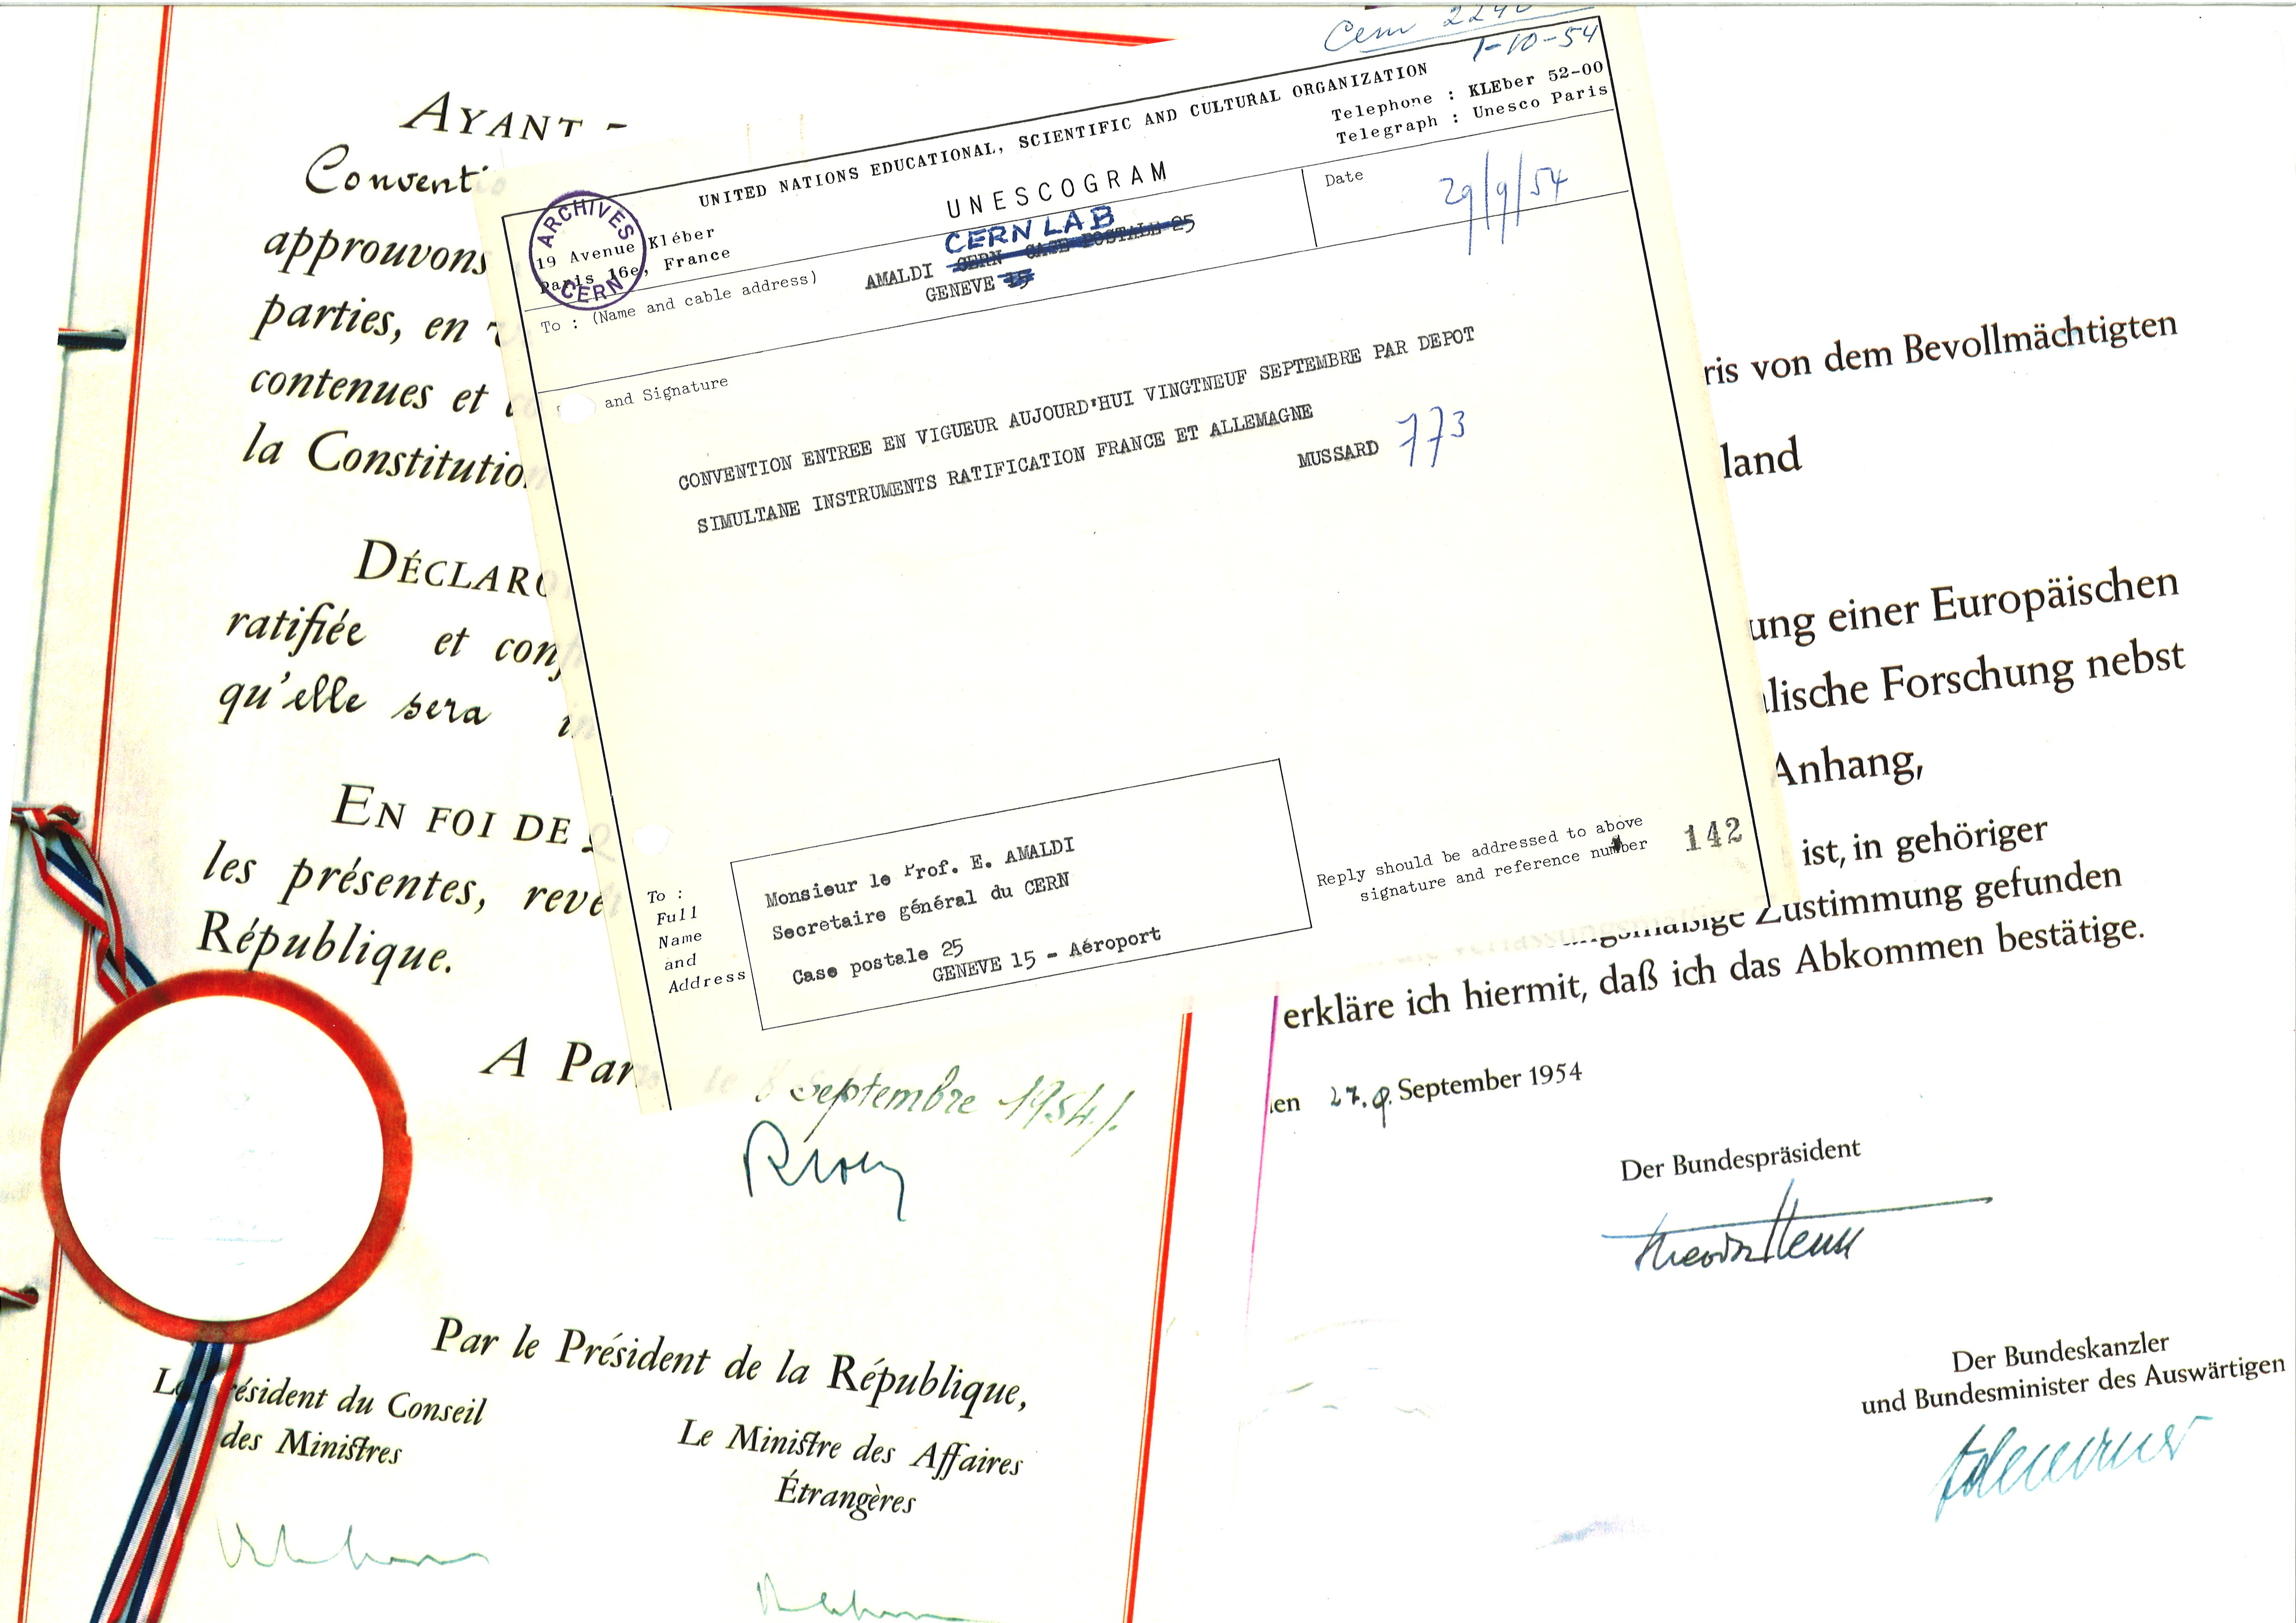 AYANT -
Conventi
approuvons
parties, en
contenues et
la Constitution
DÉCLARO
ratifiée et conf
qu'elle sera in
EN FOI DE Q
les présentes, revê
République.
A Par le 8 Septembre 1954./.
Par le Président de la République,
Le Président du Conseil
des Ministres
Le Ministre des Affaires
Étrangères
Cern
1-10-54
UNITED NATIONS EDUCATIONAL, SCIENTIFIC AND CULTURAL ORGANIZATION
Telephone : KLEber 52-00
Telegraph : Unesco Paris
UNESCOGRAM
ARCHIVES
CERN
19 Avenue Kléber
Paris 16e, France
Date
29/9/54
To : (Name and cable address)
CERN LAB
AMALDI CERN CASE POSTALE 25
GENEVE 15
and Signature
CONVENTION ENTREE EN VIGUEUR AUJOURD'HUI VINGTNEUF SEPTEMBRE PAR DEPOT
SIMULTANE INSTRUMENTS RATIFICATION FRANCE ET ALLEMAGNE
MUSSARD 773
To :
Full
Name
and
Address
Monsieur le Prof. E. AMALDI
Secretaire général du CERN
Case postale 25
GENEVE 15 - Aéroport
Reply should be addressed to above
signature and reference number
142
ris von dem Bevollmächtigten
land
ung einer Europäischen
lische Forschung nebst
Anhang,
ist, in gehöriger
ungsmäßige Zustimmung gefunden
erkläre ich hiermit, daß ich das Abkommen bestätige.
en 27. 9. September 1954
Der Bundespräsident
Theodor Heuss
Der Bundeskanzler
und Bundesminister des Auswärtigen
Adenauer